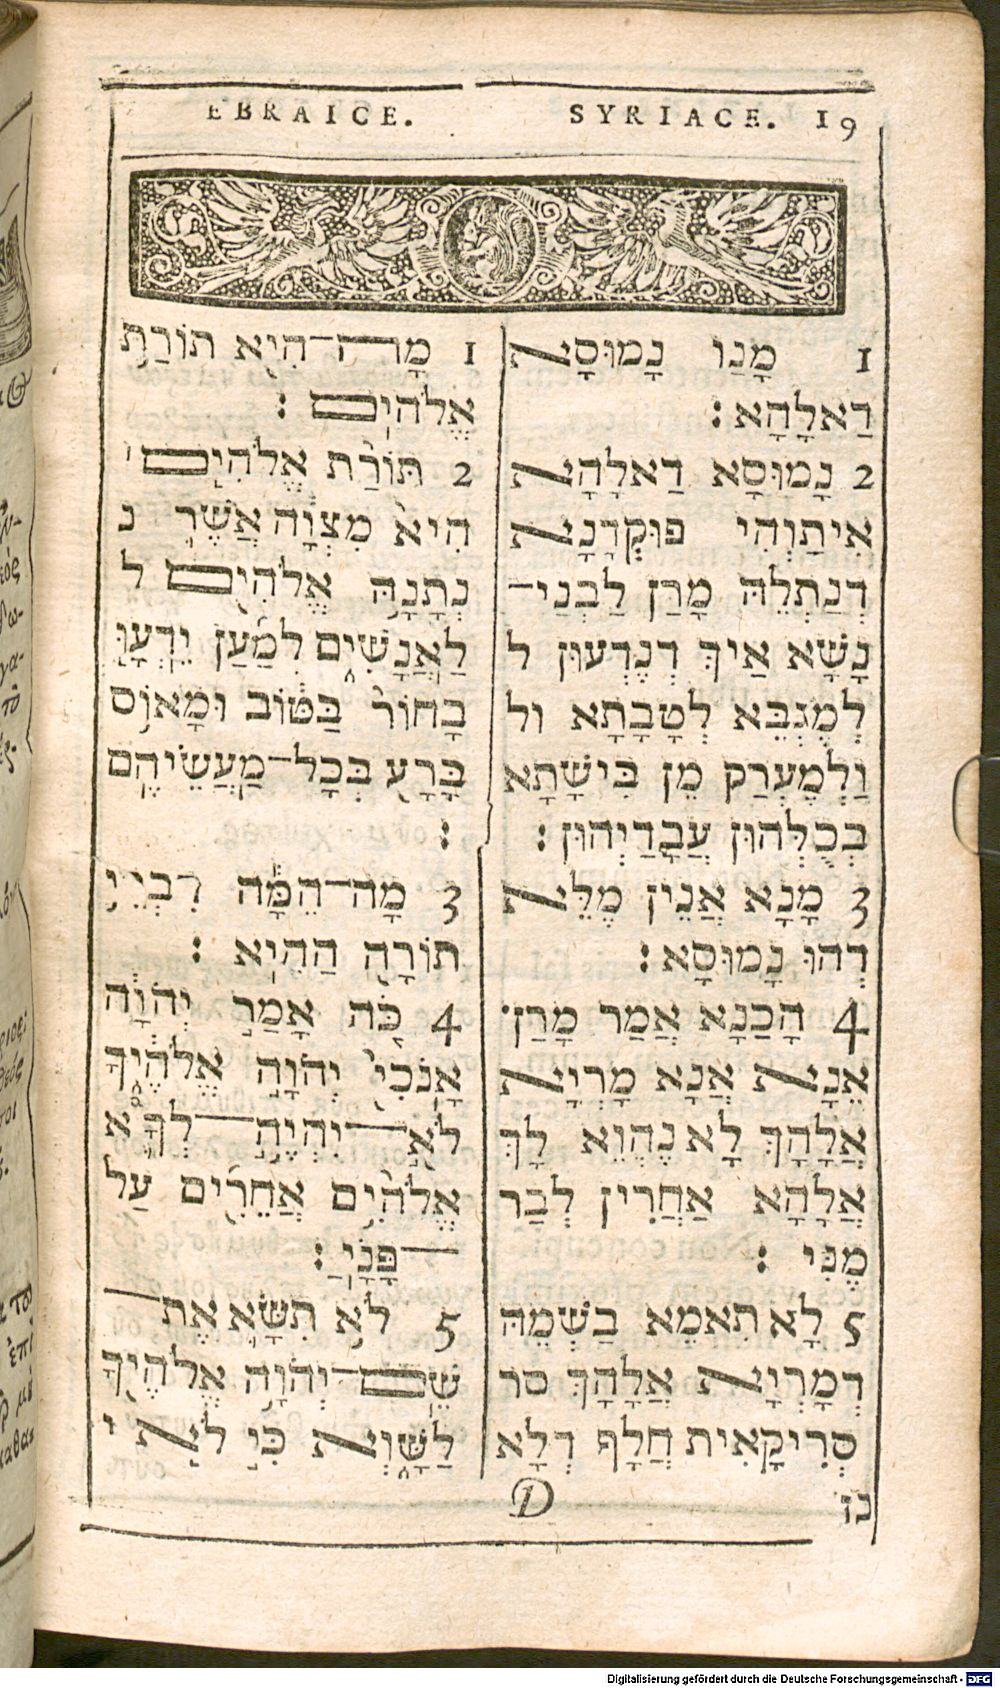 EBRAICE. SYRIACE. 19
1 מָנַו נָמוּסָא
דַאלָהָא:
2 נָמוּסָא דַאלָהָא
אִיתַוְהִי פוּקְדָנָא
דְנַתְלֵהּ מָרַן לַבְנַי־
נָשָׁא אַיךְ דְנֶדְעוּן ל
לְמֶגְבֵּא לְטָבָתָא ול
וַלְמֶעְרַק מִן בִּישָׁתָא
בְּכֻלְּהוּן עֲבָדַיְהוּן:
3 מָנָא אֲנֵין מֶלֵּא
דְהוּ נָמוּסָא:
4 הָכַנָא אֲמַר מָרַן·
אֶנָא אֲנָא מָרְיָא
אֲלָהָךְ לָא נֶהְוֵא לָךְ
אֲלָהָא אַחֲרִין לְבַר
מֶנִּי :
5 לָא תִאמֵא בַשְׁמֵהּ
דְמָרְיָא אֲלָהָךְ סר
סְרִיקָאִית חֲלָף דְלָא
D
נז
1 מָה־הִיא תּוֹרַת
אֱלֹהִים :
2 תּוֹרַת אֱלֹהִים י
הִיא מִצְוָה אֲשֶׁר נ
נְתָנָהּ אֱלֹהִים ל
לַאֲנָשִׁים לְמַעַן יֵדְעוּ
בָחוֹר בַּטּוֹב וּמָאוֹס
בָּרָע בְּכָל־מַעֲשֵׂיהֶם
:
3 מָה־הֵמָּה דִבְרֵי
תוֹרָה הַהִיא :
4 כֹּה אָמַר יְהוָה
אָנֹכִי יְהוָה אֱלֹהֶיךָ
לֹא־יִהְיֶה־לְךָ א
אֱלֹהִים אֲחֵרִים עַל
־פָּנָי:
5 לֹא תִשָּׂא אֶת־
שֵׁם־יְהוָה אֱלֹהֶיךָ
לַשָּׁוְא כִּי לֹא י
Digitalisierung gefördert durch die Deutsche Forschungsgemeinschaft - DFG